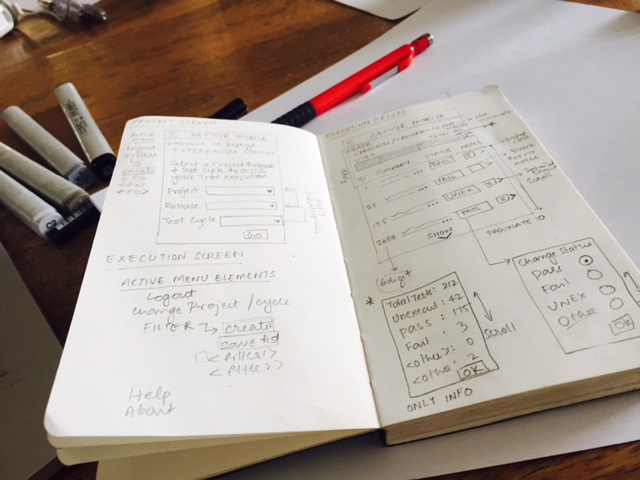 PROJECT SCREEN
Active
Menu
Logout
ZEPHYR MOBILE
Welcome to Zephyr
Select a Project Release
& Test Cycle to access
your Test execution
Project
Release
Test Cycle
GO
EXECUTION SCREEN
ACTIVE MENU ELEMENTS
Logout
change Project / cycle
FILTER
create
save As
<filter1>
<filter2>
Help
About
EXECUTION SCREEN
ZEPHYR MOBILE
SUMMARY STATUS
1 PASS
25 FAIL
175 UNEX
2654 PASS
SHOW
PAGINATE 10
6 digit
*
Total Tests: 212
Unexecut: 42
Pass: 175
Fail: 3
<other>: 0
<other: 2
OK
Scroll
ONLY INFO
Change Status
Pass
Fail
UNEX
Other
OK